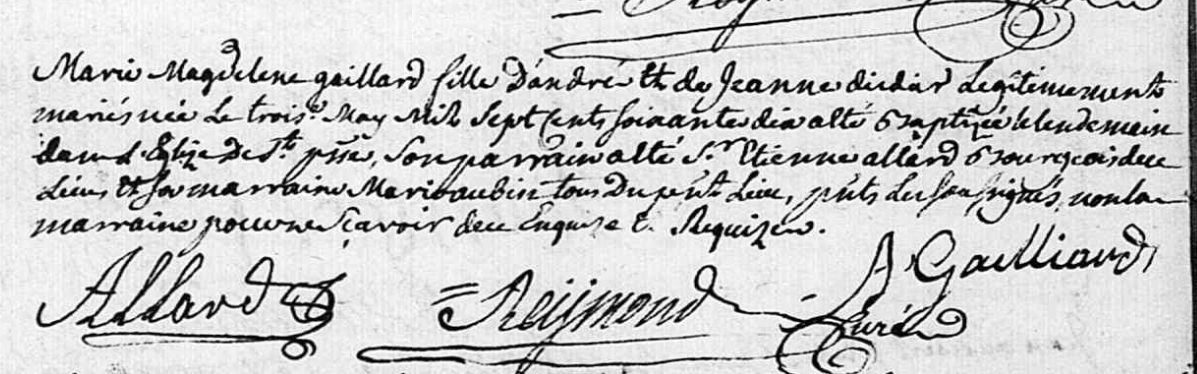 Marie Magdelene gaillard fille D'andré et de Jeanne didier Legitimement
mariés née Le trois.e May Mil Sept Cents soixante dix a été Baptizée le lendemain
dans L'Eglize De St. pne, Son parrain a été Sr. Etienne allard Bourgeois de ce
Lieu et sa marraine Marie aubin tous Du pnt Lieu, pnts Les soussignés, non la
marraine pour ne sçavoir de ce Enquize & Requize.
Allard Reijmond Curé A Gailliard